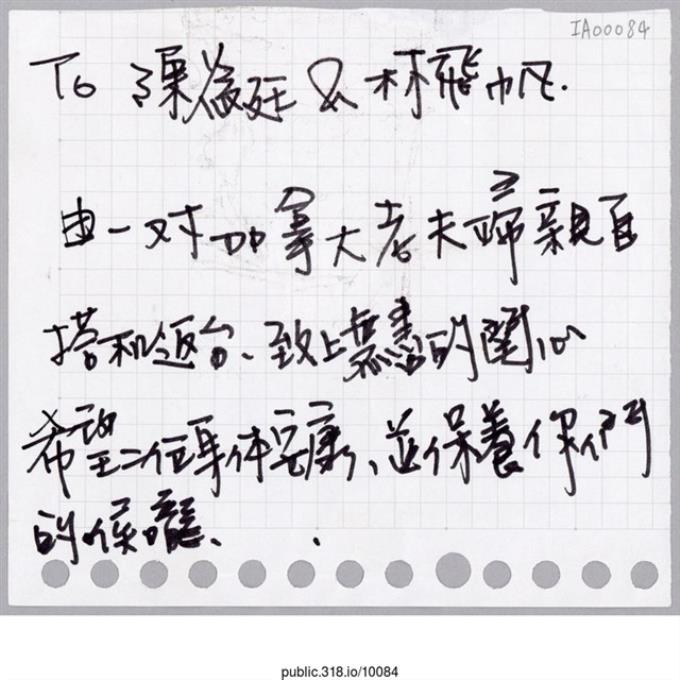 IA00084
To 陳為廷 & 林飛帆.
由一对加拿大老夫婦親自
搭和返台、致上無盡的関心
希望二位身体安康、並保養你們
的喉嚨、.
public.318.io/10084